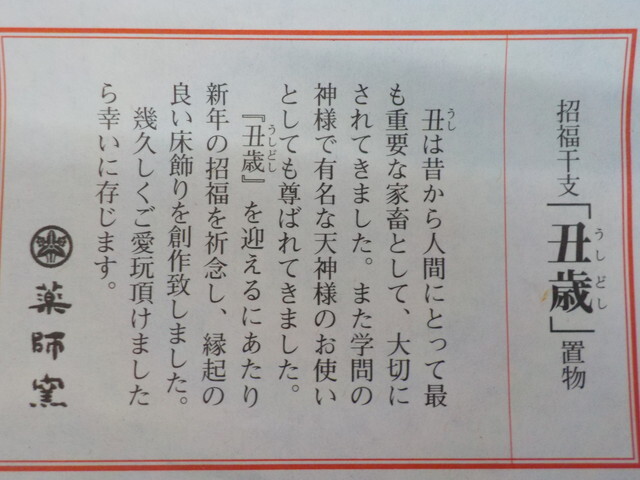 招福干支「丑歳」置物
うしどし
丑は昔から人間にとって最
うし
も重要な家畜として、大切に
されてきました。また学問の
神様で有名な天神様のお使い
としても尊ばれてきました。
『丑歳』を迎えるにあたり
うしどし
新年の招福を祈念し、縁起の
良い床飾りを創作致しました。
幾久しくご愛玩頂けました
ら幸いに存じます。
薬師窯